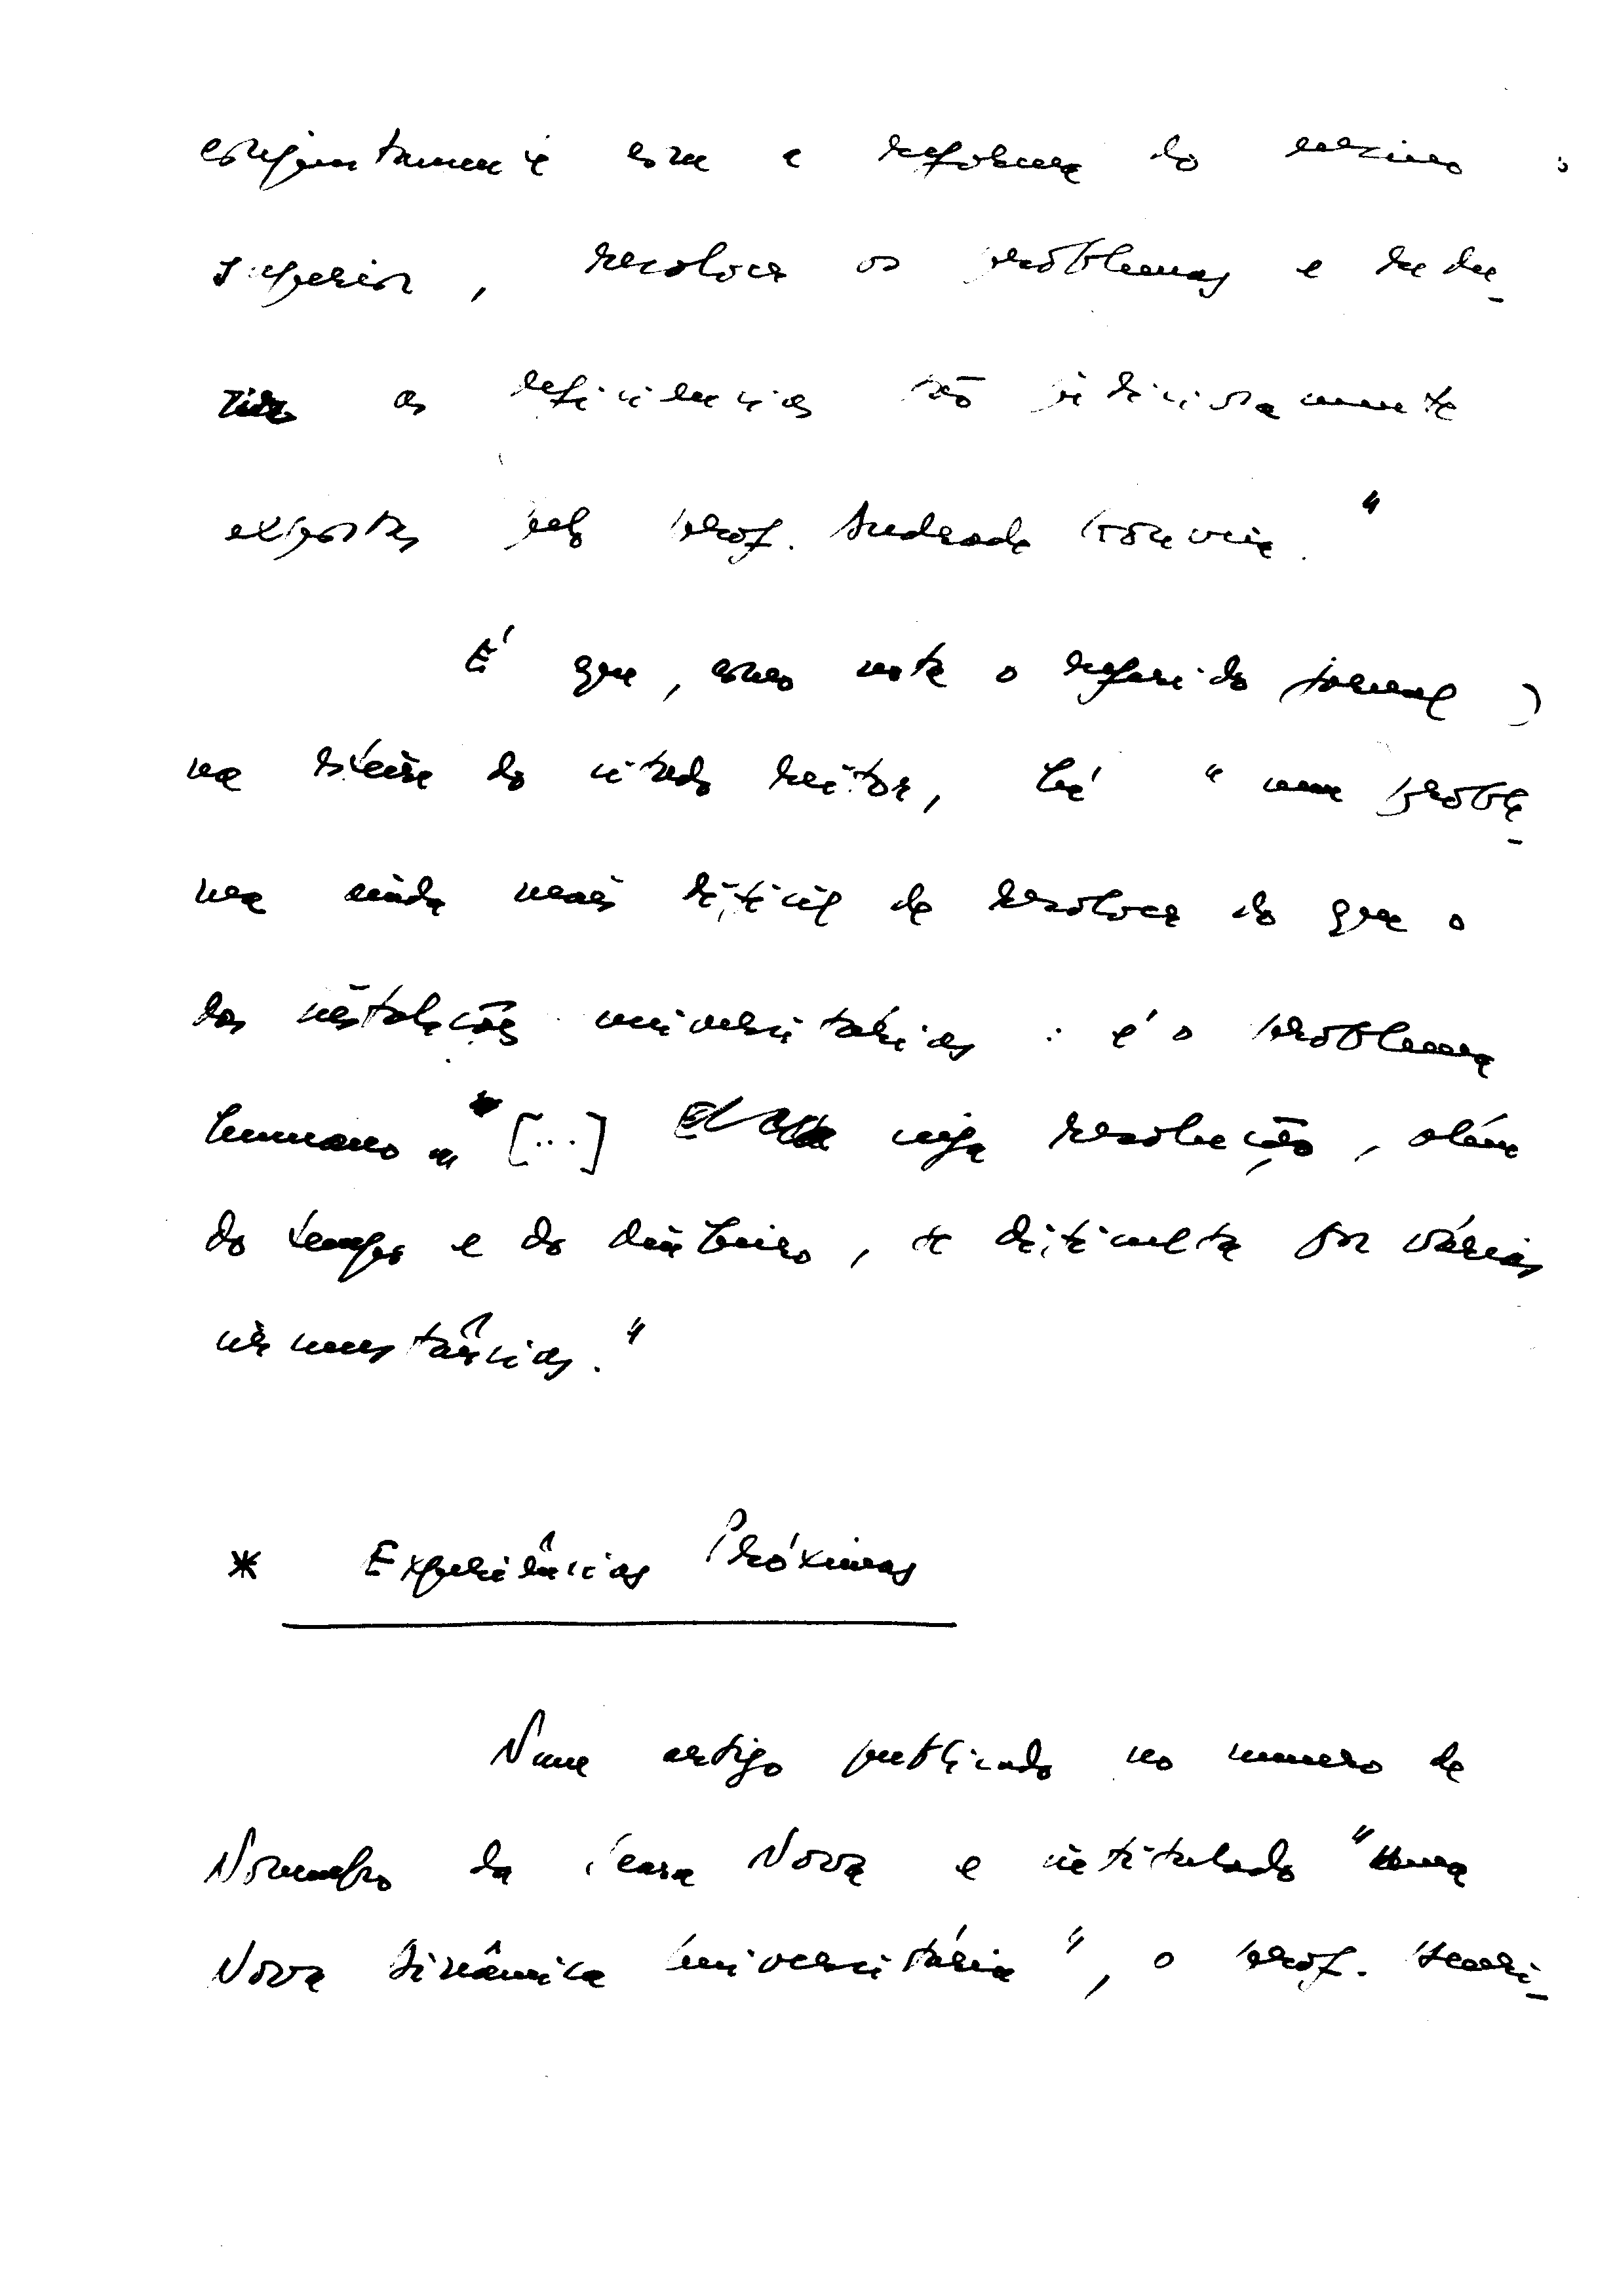 conjuntamente com a reforma do ensino
superior, resolver os problemas e redu-
zir as deficiencias tão judiciosamente
expostas pelo prof. Andrade Gouveia."
É que, como nota o referido jornal,
na do citado reitor, há "um proble
ma ainda mais difícil de resolver do que o
das instalações universitárias: é o problema
humano" [...] cuja resolução, além
do tempo e do dinheiro, se dificulta por várias
circunstâncias."
* Experiências Próximas
Num artigo publicado no numero de
Novembro da Seara Nova e intitulado "Uma
Nova Dinâmica Universitária", o prof. Henri-